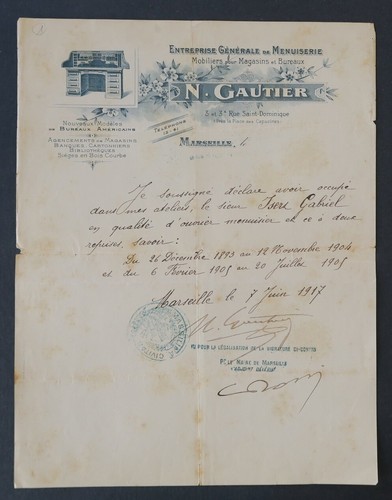 ENTREPRISE GÉNÉRALE DE MENUISERIE
Mobiliers pour Magasins et Bureaux
N. GAUTIER
3 et 3ᴬ Rue Saint-Dominique
(près la Place des Capucines)
NOUVEAUX MODÈLES
DE BUREAUX AMÉRICAINS
AGENCEMENTS DE MAGASINS
BANQUES, CARTONNIERS
BIBLIOTHÈQUES
SIÈGES EN BOIS COURBÉ
TÉLÉPHONE
MARSEILLE, le
Je soussigné déclare avoir occupé
dans mes ateliers, le sieur Isert Gabriel
en qualité d'ouvrier menuisier et ce à deux
reprises, savoir :
Du 26 Décembre 1893 au 12 Novembre 1904
et du 6 Février 1905 au 20 Juillet 1905
Marseille le 7 Juin 1917
N. Gautier
VU POUR LA LÉGALISATION DE LA SIGNATURE CI-CONTRE
P. LE MAIRE DE MARSEILLE
L'ADJOINT DÉLÉGUÉ